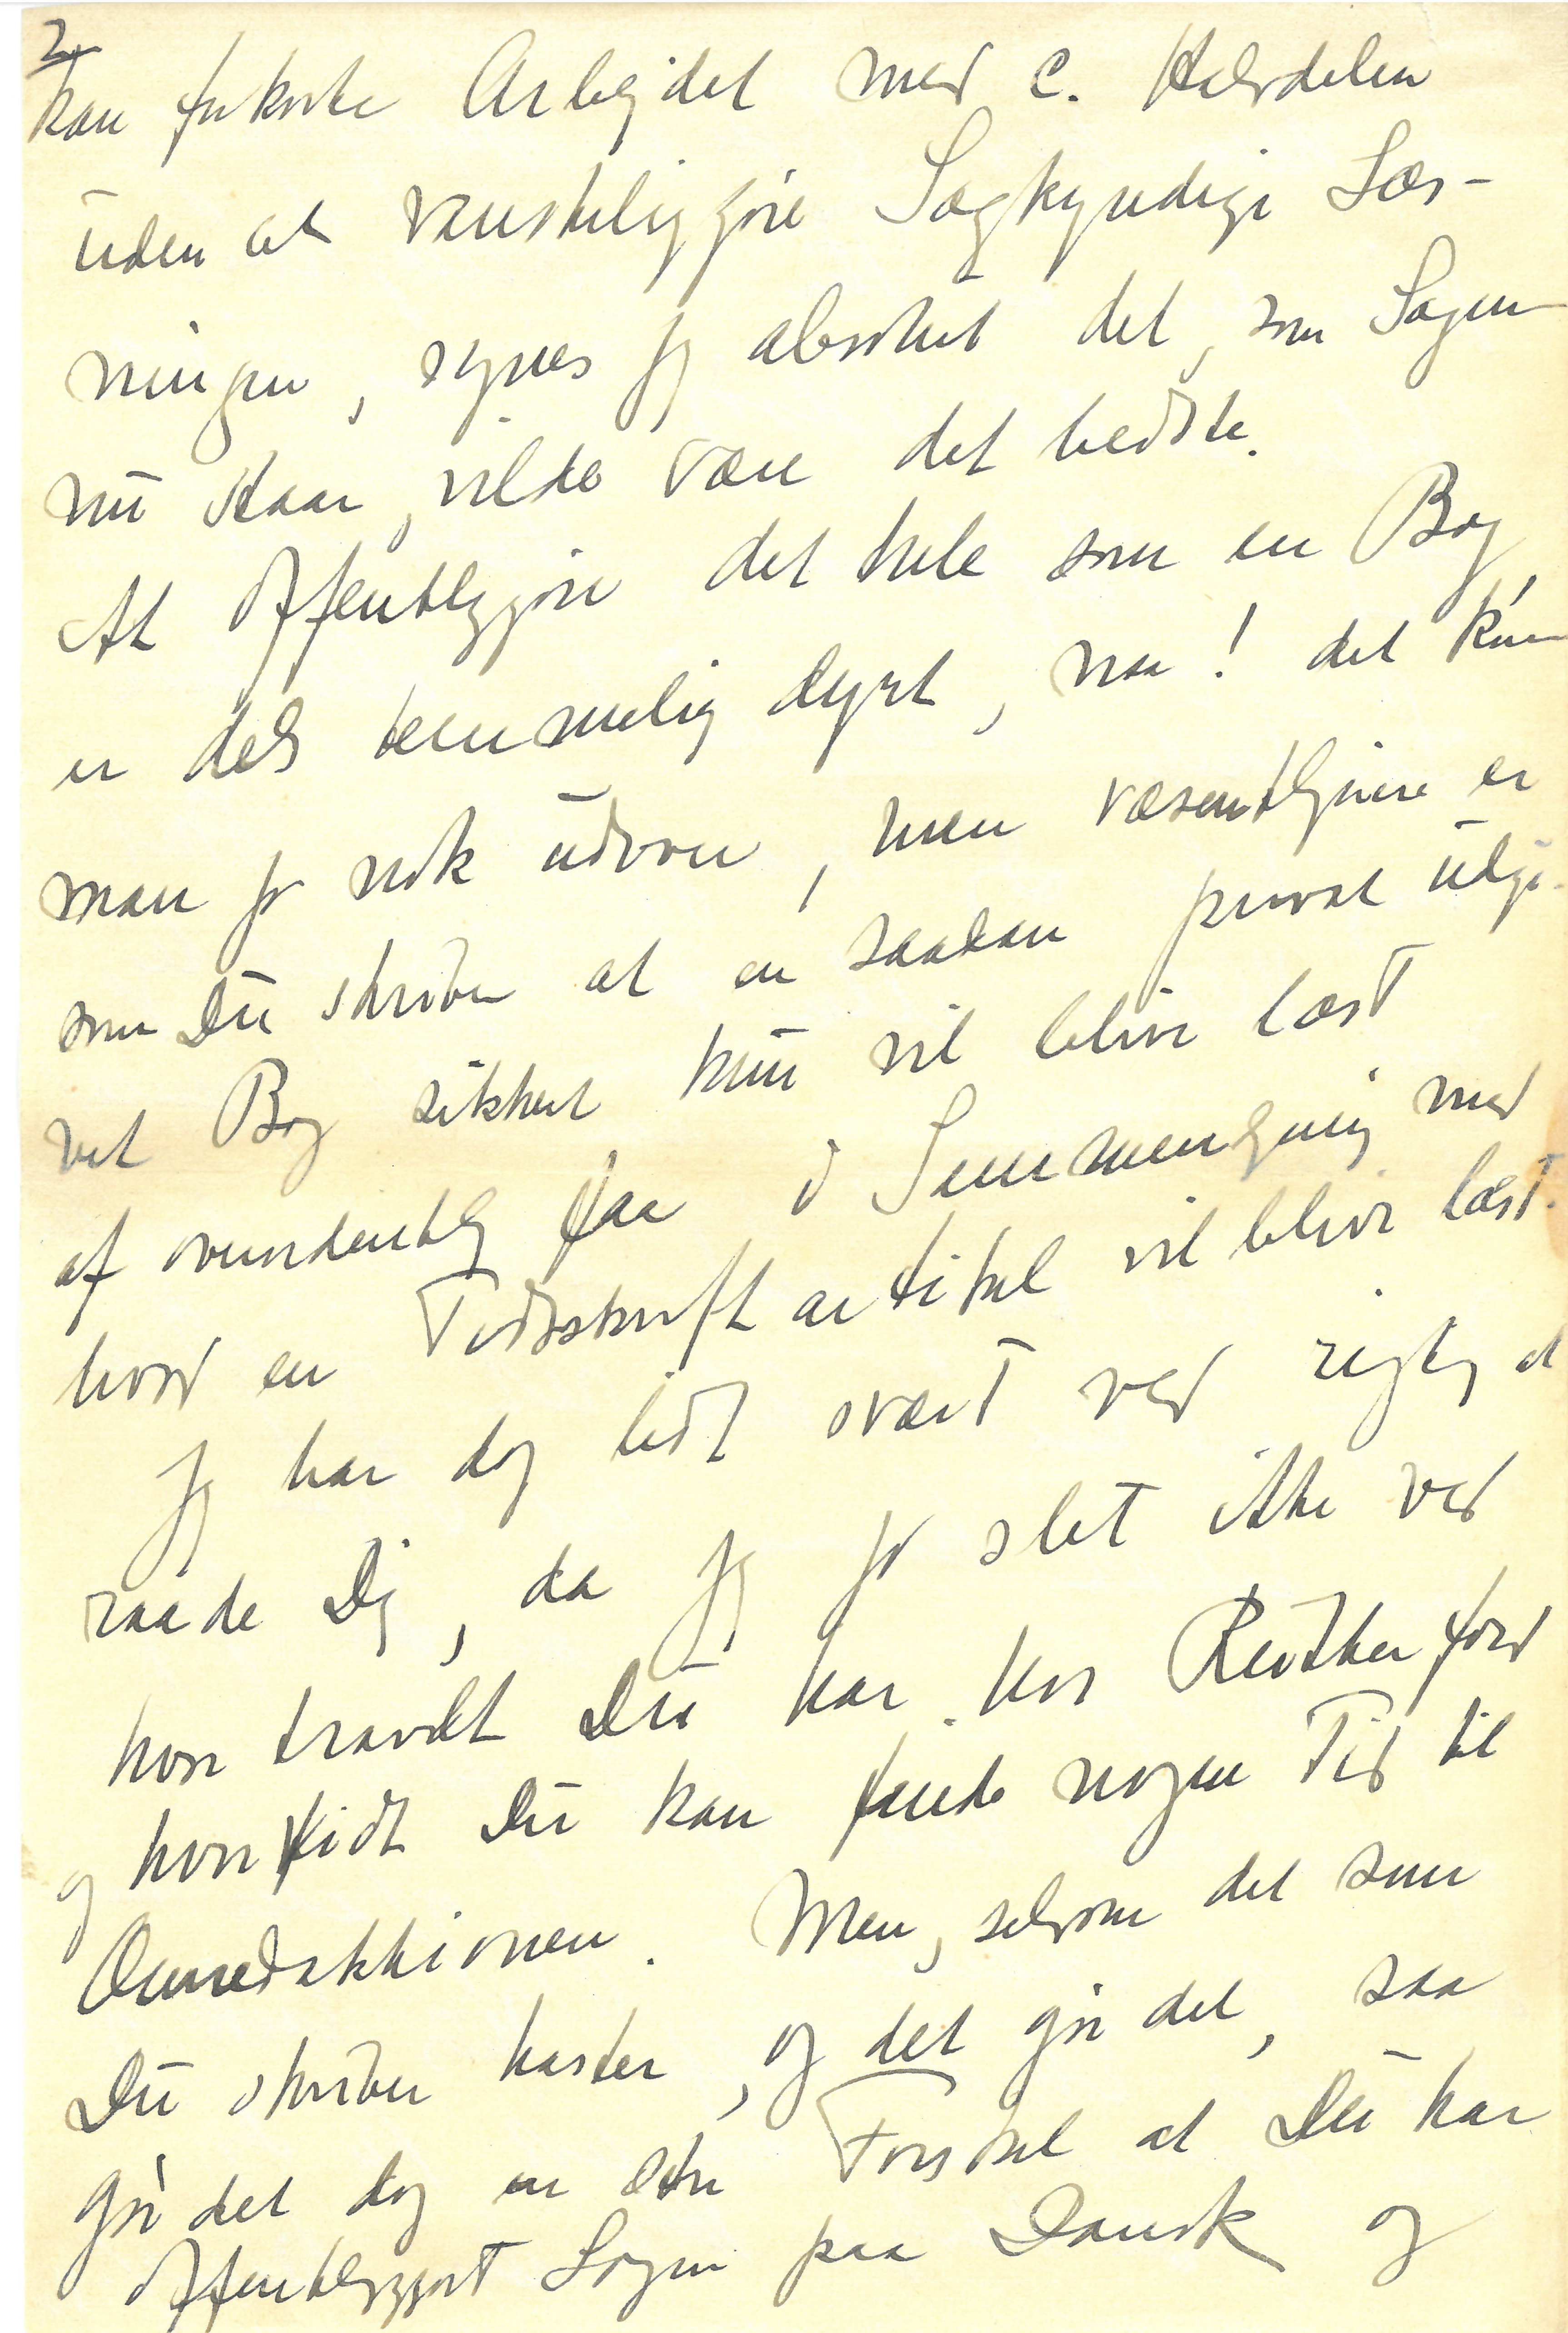 2
kan forkorte Arbejdet med c. Halvdelen
uden at vanskeliggøre Sagkyndige Læs-
ningen, synes jeg absolut det, som Sagen
nu staar, vilde være det bedste.
At offentliggøre det hele som en Bog,
er dels temmelig dyrt, naa! det kun
man jo nok udvove, men væsentligere er
som Du skriver at en saadan privat udgi-
vet Bog sikkert kun vil blive læst
af overordentlig faa i Sammenligning med
hvad en Tidsskriftartikel vil blive læst.
Jeg har dog lidt svært ved rigtig at
raade Dig, da jeg jo slet ikke ved
hvor travlt Du har hos Rutherford
og hvorvidt Du kan finde nogen Tid til
Omredaktionen. Men, selvom det som
Du skriver haster, og det gør det, saa
gør det dog en stor Forskel at Du har
offentliggjort Sagen paa Dansk og